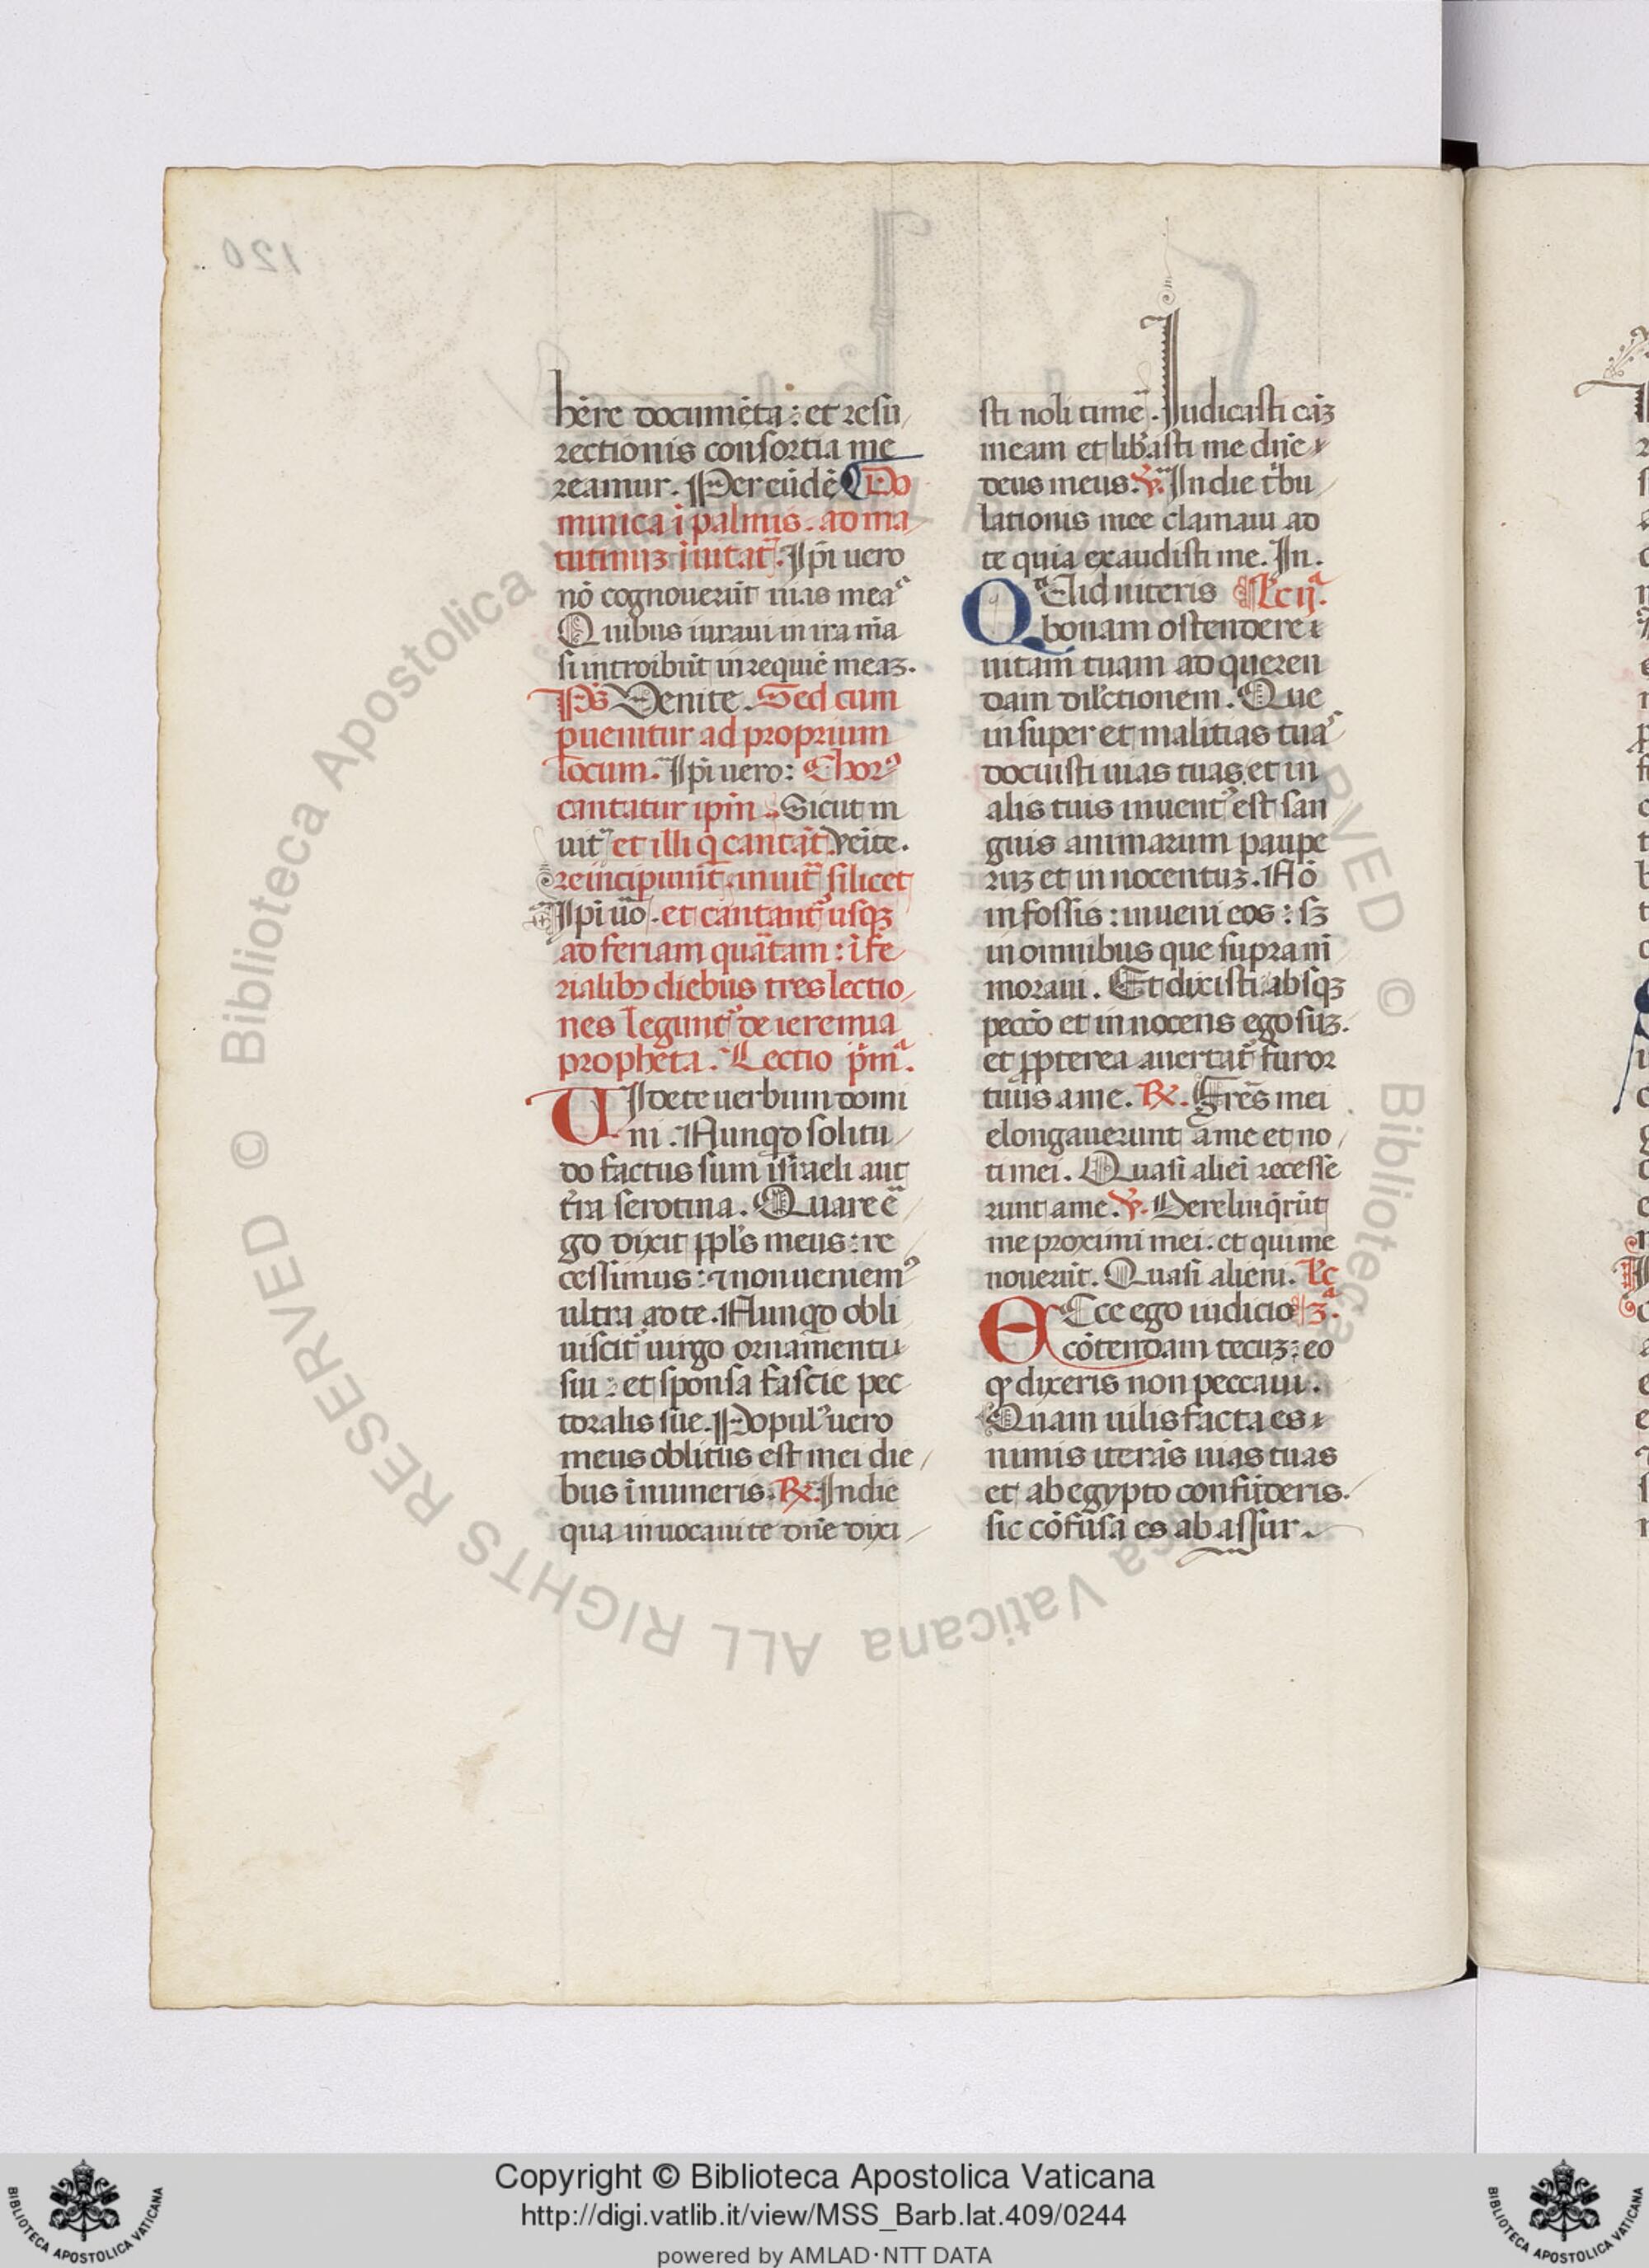 hēre documēta : et resu
rectionis consortia me
reamur . Per eūdē Do
minica i palmis . ad ma
tutinuꝫ īuitat͛ . Ip̄i uero
nō cognouerūt uias meaˢ
Quibus iuraui in ira m̄a
si introibūt in requiē meaꝫ .
Ps̄ Venite . Sed cum
ꝑuenitur ad proprium
locum . Ip̄i uero : Chorꝰ
cantatur ip̄m . Sicut in
uit͛ et illi q̄ cantāt
reincipiunt . inuit͛ silicet
Ip̄i uo̅ . et cantantꝰ usqꝫ
ad feriam quātam : ī fe
rialibꝫ diebus tres lectio
nes leguntꝰ de ieremia
propheta . Lectio p̄mᵃ .
UIdete uerbum domi
ni . Nunqd solitu
do factus sum israeli aut
t̄ra serotina . Quare ē
go dixit ppl̄s meus : re
cessimus : ⁊ non ueniemꝰ
ultra ad te . Nunqd obli
uiscit͛ uirgo ornamenti
sui : et sponsa fascie pec
toralis sue . Populꝰ uero
meus oblitus est mei die
bus īnumeris . ℟. In die
qua inuocaui te dn̄e dixi
sti noli time͛ . Iudicasti cāꝫ
meam et lib͛asti me dn̄e
deus meus . ℣. In die t͛bu
lationis mee clamaui ad
te quia exaudisti me . In .
QUid niteris Lc̄ ijᵃ .
bonam ostendere
uitam tuam ad queren
dam dil̄ctionem . Que
insuper et malitias tuaˢ
docuisti uias tuas . et in
alis tuis inuentꝰ est san
guis animarum paupe
ruꝫ et innocentuꝫ . Nō
in fossis : inueni eos : sꝫ
in omnibus que supra m̄
moraui . Et dixisti absqꝫ
pecc̄o et innocens ego suꝫ .
et ꝓpterea auertat͛ furor
tuus a me . ℟. Fr̄es mei
elongauerunt a me et no
ti mei . Quasi alieī recesse
runt a me . ℣. Derelinq̄rūt
me proximi mei . et qui me
nouerūt . Quasi alieni . Lc̄
ECce ego iudicio 3ᵃ .
cōtendam tecuꝫ : eo
ꝙ dixeris non peccaui .
Quam uilis facta es
nimis iterās uias tuas
et ab egypto confūderis .
sic cōfusa es ab assur .
120
Copyright © Biblioteca Apostolica Vaticana
http://digi.vatlib.it/view/MSS_Barb.lat.409/0244
powered by AMLAD·NTT DATA
BIBLIOTECA APOSTOLICA VATICANA
BIBLIOTECA APOSTOLICA VATICANA
© Biblioteca Apostolica Vaticana ALL RIGHTS RESERVED © Biblioteca Apostolica Vaticana ALL RIGHTS RESERVED